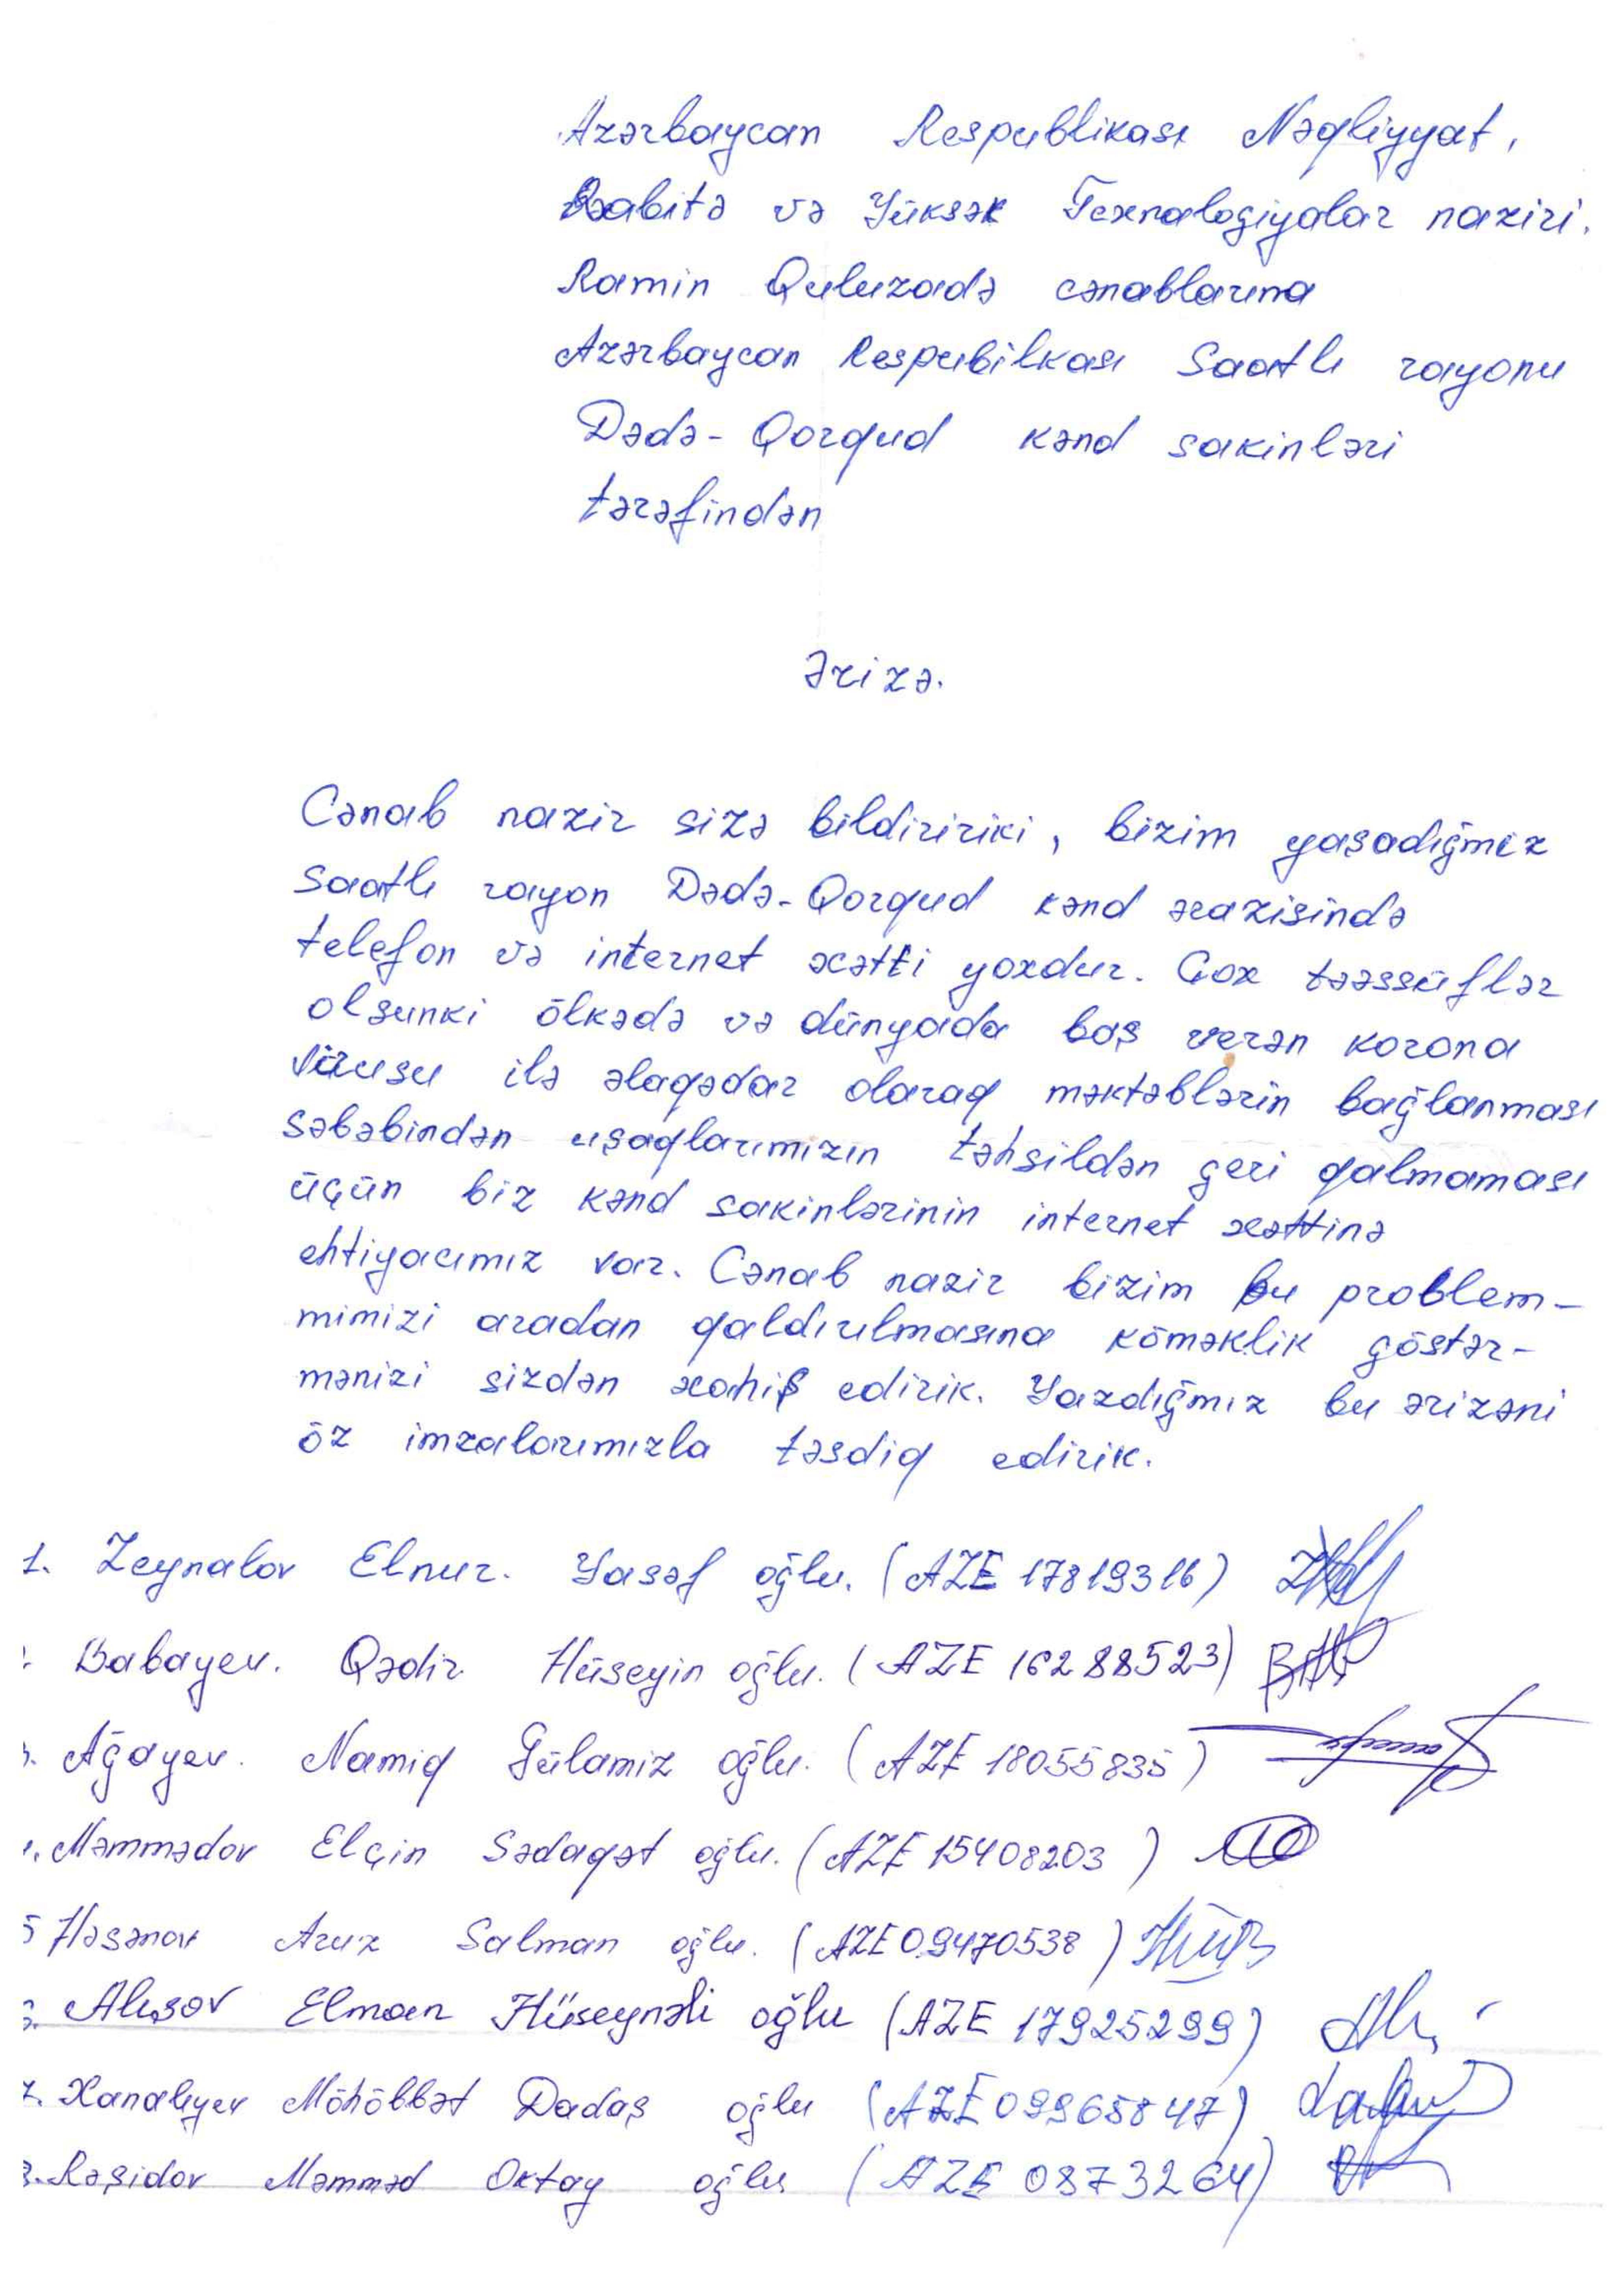 Azərbaycan Respublikası Nəqliyyat,
Rabitə və Yüksək Texnalogiyalar naziri.
Ramin Quluzadə cənablarına
Azərbaycan Respubilkası Saatlı rayonu
Dədə-Qorqud kənd sakinləri
tərəfindən
Ərizə.
Cənab nazir sizə bildiririki, bizim yaşadığmız
Saatlı rayon Dədə-Qorqud kənd ərazisində
telefon və internet xətti yoxdur. Çox təəssüflər
olsunki ölkədə və dünyada baş verən korona
virusu ilə əlaqədar olaraq məktəblərin bağlanması
səbəbindən uşaqlarımızın təhsildən geri qalmaması
üçün biz kənd sakinlərinin internet xəttinə
ehtiyacımız var. Cənab nazir bizim bu problem-
mimizi aradan qaldırılmasına köməklik göstər-
mənizi sizdən xahiş edirik. Yazdığmız bu ərizəni
öz imzalarımızla təsdiq edirik.
1. Zeynalov Elnur. Yasəf oğlu. (AZE 17819316)
Babayev. Qədir Hüseyin oğlu. (AZE 16288523)
Ağayev. Namiq Gülamiz oğlu. (AZE 18055835)
Məmmədov Elçin Sədaqət oğlu. (AZE 15408203)
5 Həsənov Aruz Salman oğlu. (AZE 09470538)
Alışov Elman Hüseynəli oğlu (AZE 17925299)
7. Xanalıyev Möhöbbət Dadaş oğlu (AZE 09965847)
8. Rəşidov Məmməd Oktay oğlu (AZE 0873264)